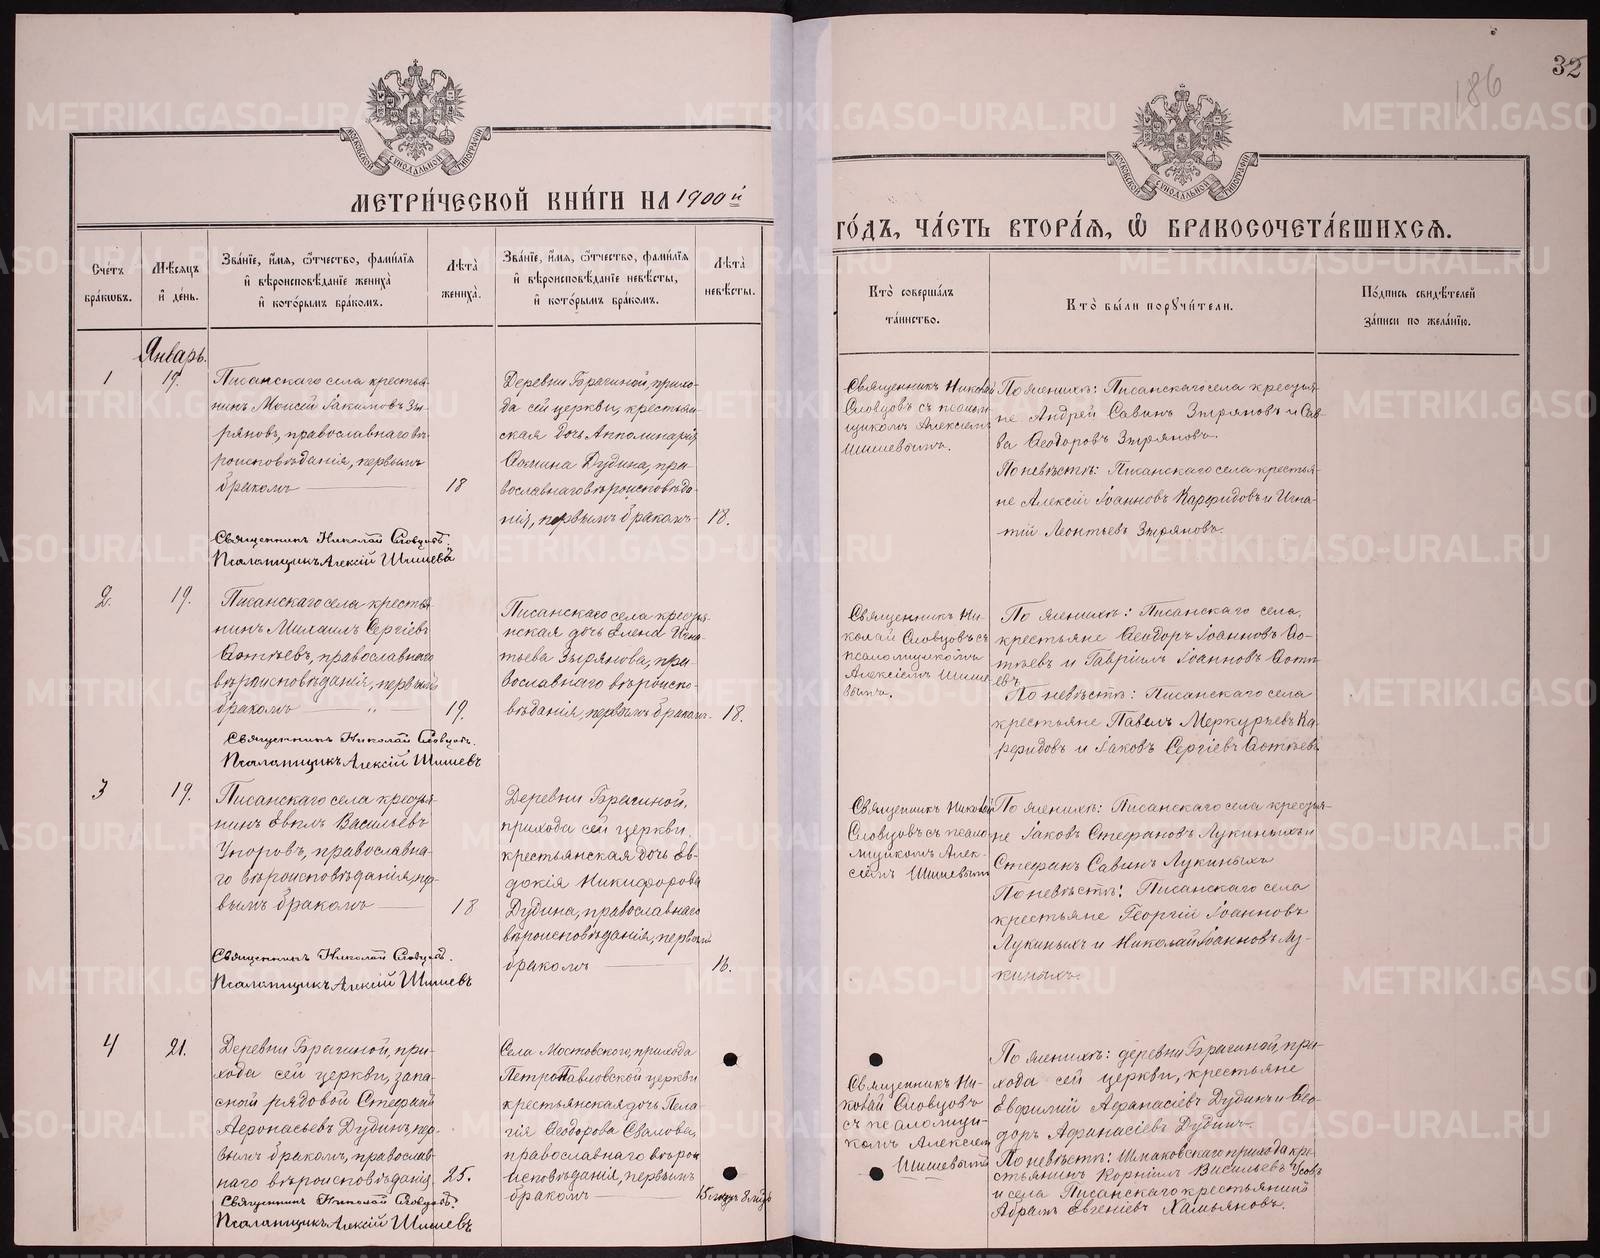 32
186
МОСКОВСКОЙ СѴНОДАЛЬНОЙ ТИПОГРАФІИ
МОСКОВСКОЙ СѴНОДАЛЬНОЙ ТИПОГРАФІИ
МЕТРИ́ЧЕСКОЙ КНИ́ГИ НА 1900й
ГО́ДЪ, ЧА́СТЬ ВТОРА́Ѧ, Ѽ БРАКОСОЧЕТА́ВШИХСѦ.
Сче́тъ
бра́кѡвъ.
Мѣ́сѧцъ
и҆ де́нь.
Зва́нїе, и҆́мѧ, ѻ҆́тчество, фами́лїѧ
и҆ вѣроисповѣ́данїе жениха̀
и҆ кото́рымъ бра́комъ.
Лѣ́та̀
жениха̀.
Зва́нїе, и҆́мѧ, ѻ҆́тчество, фами́лїѧ
и҆ вѣроисповѣ́данїе невѣ́сты,
и҆ кото́рымъ бра́комъ.
Лѣ́та̀
невѣ́сты.
Кто̀ соверша́лъ
та́инство.
Кто̀ бы́ли порꙋчи́тели.
По́дпись свидѣ́телей
за́писи по жела́нїю.
Январь.
1
19.
Писанскаго села крестья-
нинъ Моисей Іакимовъ Зы-
ряновъ, православнаго вѣ-
роисповѣданія, первымъ
бракомъ
18
Священникъ Николай Словцовъ.
Псаломщикъ Алексій Шишевъ
Деревни Брагиной, прихо-
да сей церкви, крестьян-
ская дочь Апполинарія
Ѳомина Дудина, пра-
вославнаго вѣроисповѣда-
нія, первымъ бракомъ-
18.
Священникъ Николай
Словцовъ съ псалом-
щикомъ Алексіемъ
Шишевымъ.
По женихѣ: Писанскаго села крестья-
не Андрей Савинъ Зыряновъ и Сав-
ва Ѳеодоровъ Зыряновъ.
По невѣстѣ: Писанскаго села крестья-
не Алексій Іоанновъ Карфидовъ и Игна-
тій Леонтьевъ Зыряновъ.
2.
19.
Писанскаго села крестья-
нинъ Михаилъ Сергіевъ
Ѳотѣевъ, православнаго
вѣроисповѣданія, первымъ
бракомъ
19.
Священникъ Николай Словцовъ.
Псаломщикъ Алексій Шишевъ
Писанскаго села крестья-
нская дочь Елена Игна-
тьева Зырянова, пра-
вославнаго вѣроиспо-
вѣданія, первымъ бракомъ.
18.
Священникъ Ни-
колай Словцовъ съ
псаломщикомъ
Алексіемъ Шише-
вымъ.
По женихѣ: Писанскаго села,
крестьяне Ѳеодоръ Іоанновъ Ѳо-
тѣевъ и Гавріилъ Іоанновъ Ѳотѣ-
евъ.
По невѣстѣ: Писанскаго села
крестьяне Павелъ Меркурьевъ Ка-
рфидовъ и Іаковъ Сергіевъ Ѳотѣевъ
3
19.
Писанскаго села крестья-
нинъ Евѳимъ Васильевъ
Упоровъ, православна-
го вѣроисповѣданія, пер-
вымъ бракомъ
18
Священникъ Николай Словцовъ.
Псаломщикъ Алексій Шишевъ
Деревни Брагиной,
прихода сей церкви,
крестьянская дочь Ев-
докія Никифорова
Дудина, православнаго
вѣроисповѣданія, первымъ
бракомъ
16.
Священникъ Николай
Словцовъ съ псало-
мщикомъ Алек-
сіемъ Шишевымъ
По женихѣ: Писанскаго села крестья-
не Іаковъ Стефановъ Лукиныхъ и
Стефанъ Савинъ Лукиныхъ
По невѣстѣ: Писанскаго села
крестьяне Георгій Іоанновъ
Лукиныхъ и Николай Іоанновъ Лу-
киныхъ.
4
21.
Деревни Брагиной, при-
хода сей церкви, запа-
сной рядовой Стефанъ
Аѳонасьевъ Дудинъ, пер-
вымъ бракомъ, православ-
наго вѣроисповѣданія
25.
Священникъ Николай Словцовъ.
Псаломщикъ Алексій Шишевъ
Села Мостовского, прихода
Петропавловской церкви
крестьянская дочь Пела-
гія Ѳеодорова Свалова,
православнаго вѣрои-
исповѣданія, первымъ
бракомъ
Священникъ Ни-
колай Словцовъ
съ псаломщи-
комъ Алексіемъ
Шишевымъ
По женихѣ: деревни Брагиной, при-
хода сей церкви, крестьяне
Евфимій Аѳанасіевъ Дудинъ и Ѳео-
доръ Аѳанасіевъ Дудинъ.
По невѣстѣ: Шмаковскаго прихода кре-
стьянинъ Корнилъ Васильевъ Усовъ
и села Писанскаго крестьянинъ
Абрамъ Евгеніевъ Хамьяновъ.
METRIKI.GASO-URAL.RU